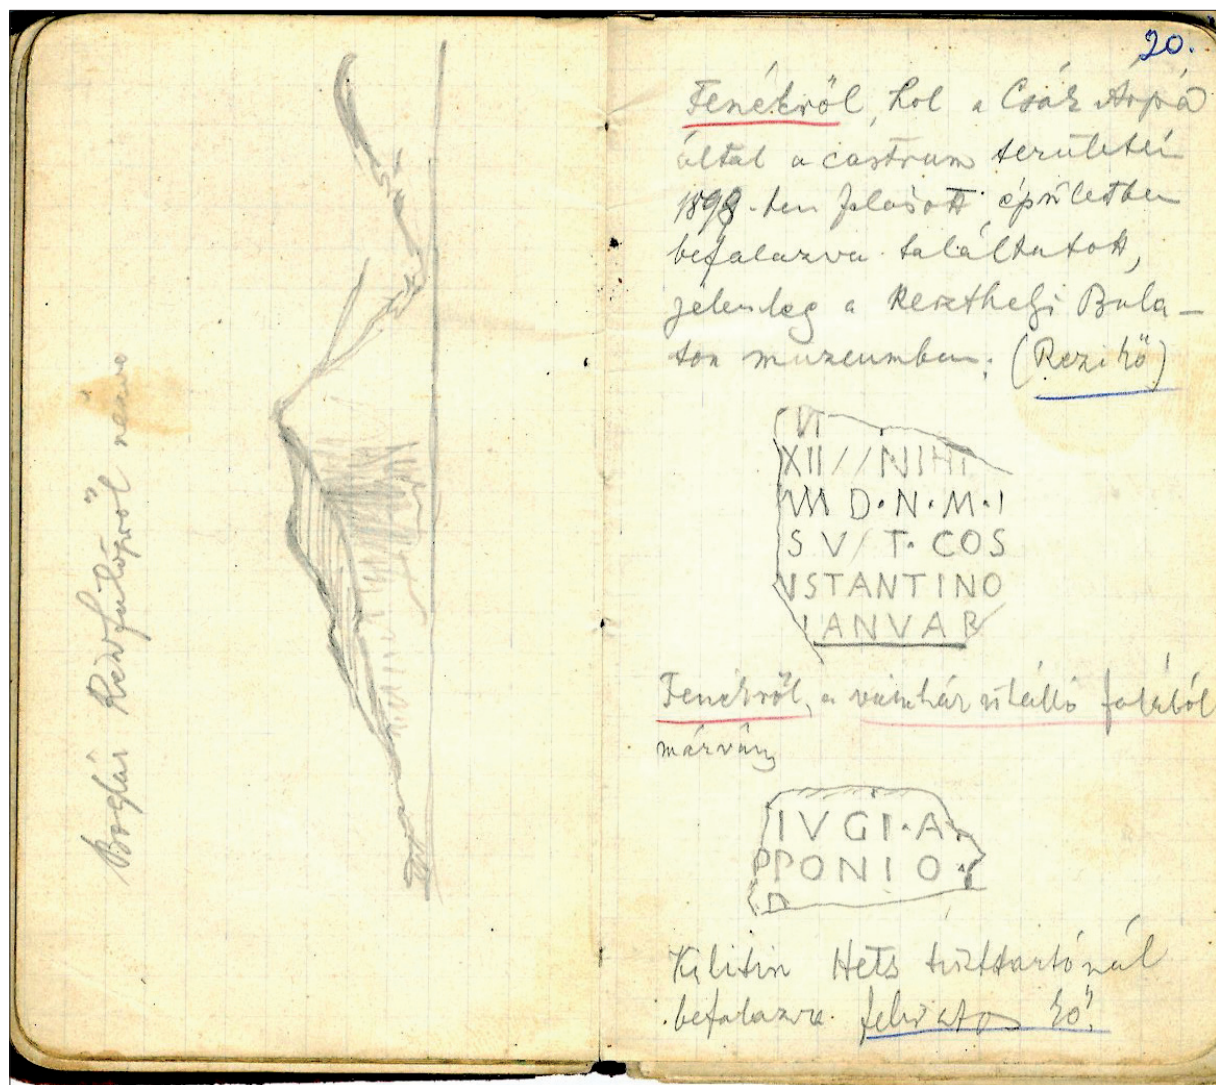 Boglár Révfülöpről nézve
20.
Fenékről, hol a Csák Árpá
által a castrum területén
1899-ben felásott épületben
befalazva találtatott,
jelenleg a Keszthelyi Bala-
ton muzeumban. (Rezi kő)
VI
XII//NIHI
D·N·M·I
SV/T·COS
NSTANTINO
IANVAR
Fenékről, a vámház utálló falából
márvány
IVGI·A
PPONIO
D
Kilitin Héts tiszttartónál
befalazva feliratos kő.